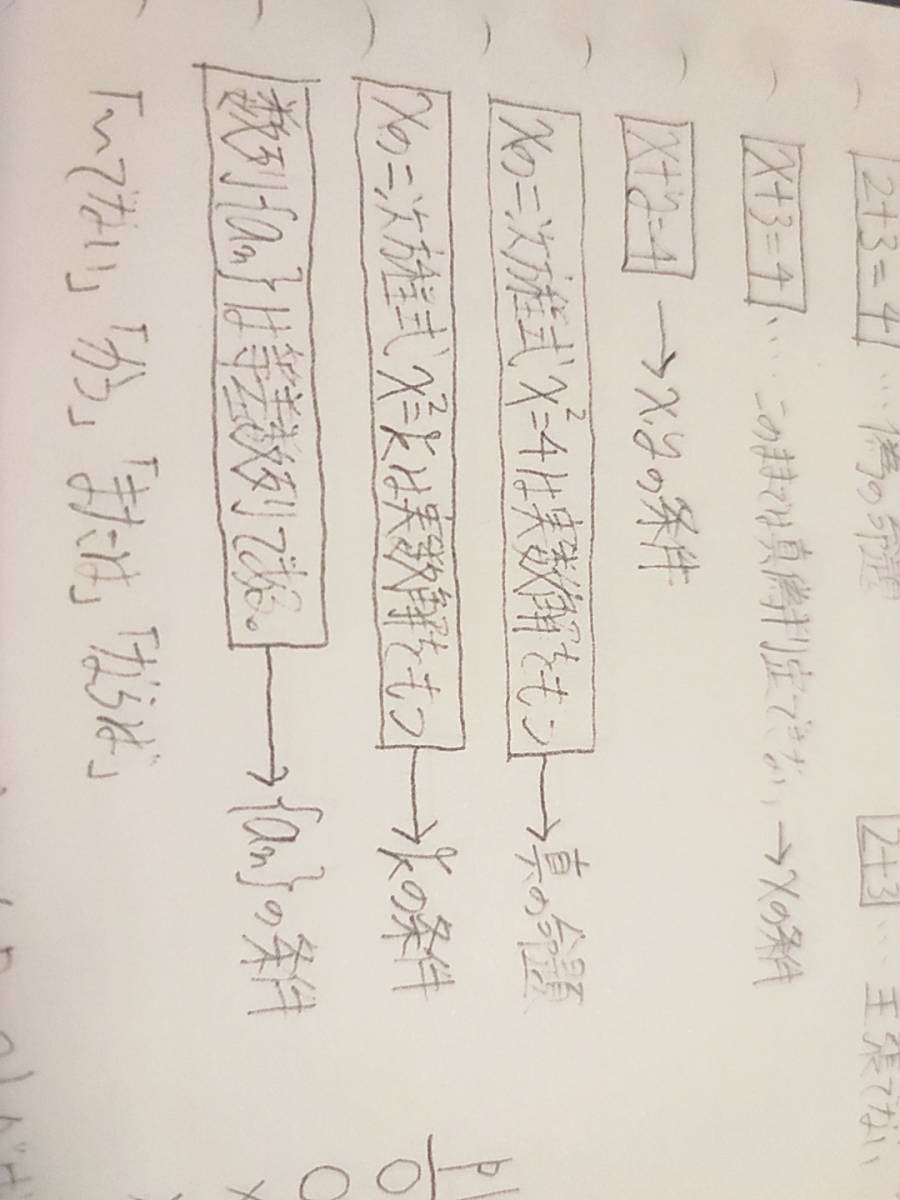 2+3=4 …偽の命題 2+3 …主張でない
x+3=4 …このままでは真偽判定できない→xの条件
x+y=1 →x,yの条件
xの二次方程式x²=4は実数解をもつ→真の命題
xの二次方程式x²=kは実数解をもつ→kの条件
数列{an}は等差数列である。→{an}の条件
「〜でない」「かつ」「または」「ならば」
P
0
0